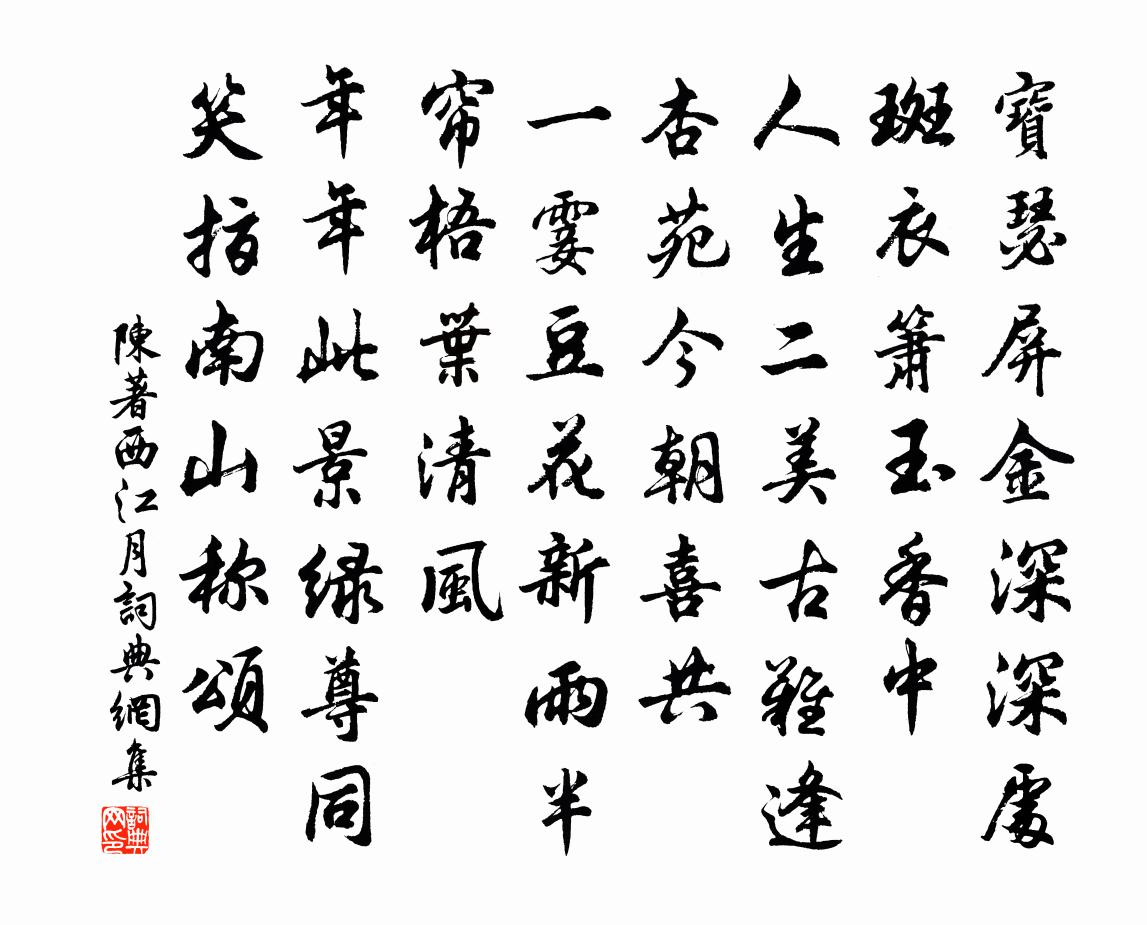 寶瑟屏金深深處
斑衣簫玉香中
人生二美古難逢
杏苑今朝喜共
一霎豆花新雨半
帘梧葉清風
年年此景緑尊同
笑指南山称頌
陳著西江月詞典網集
詞典网印